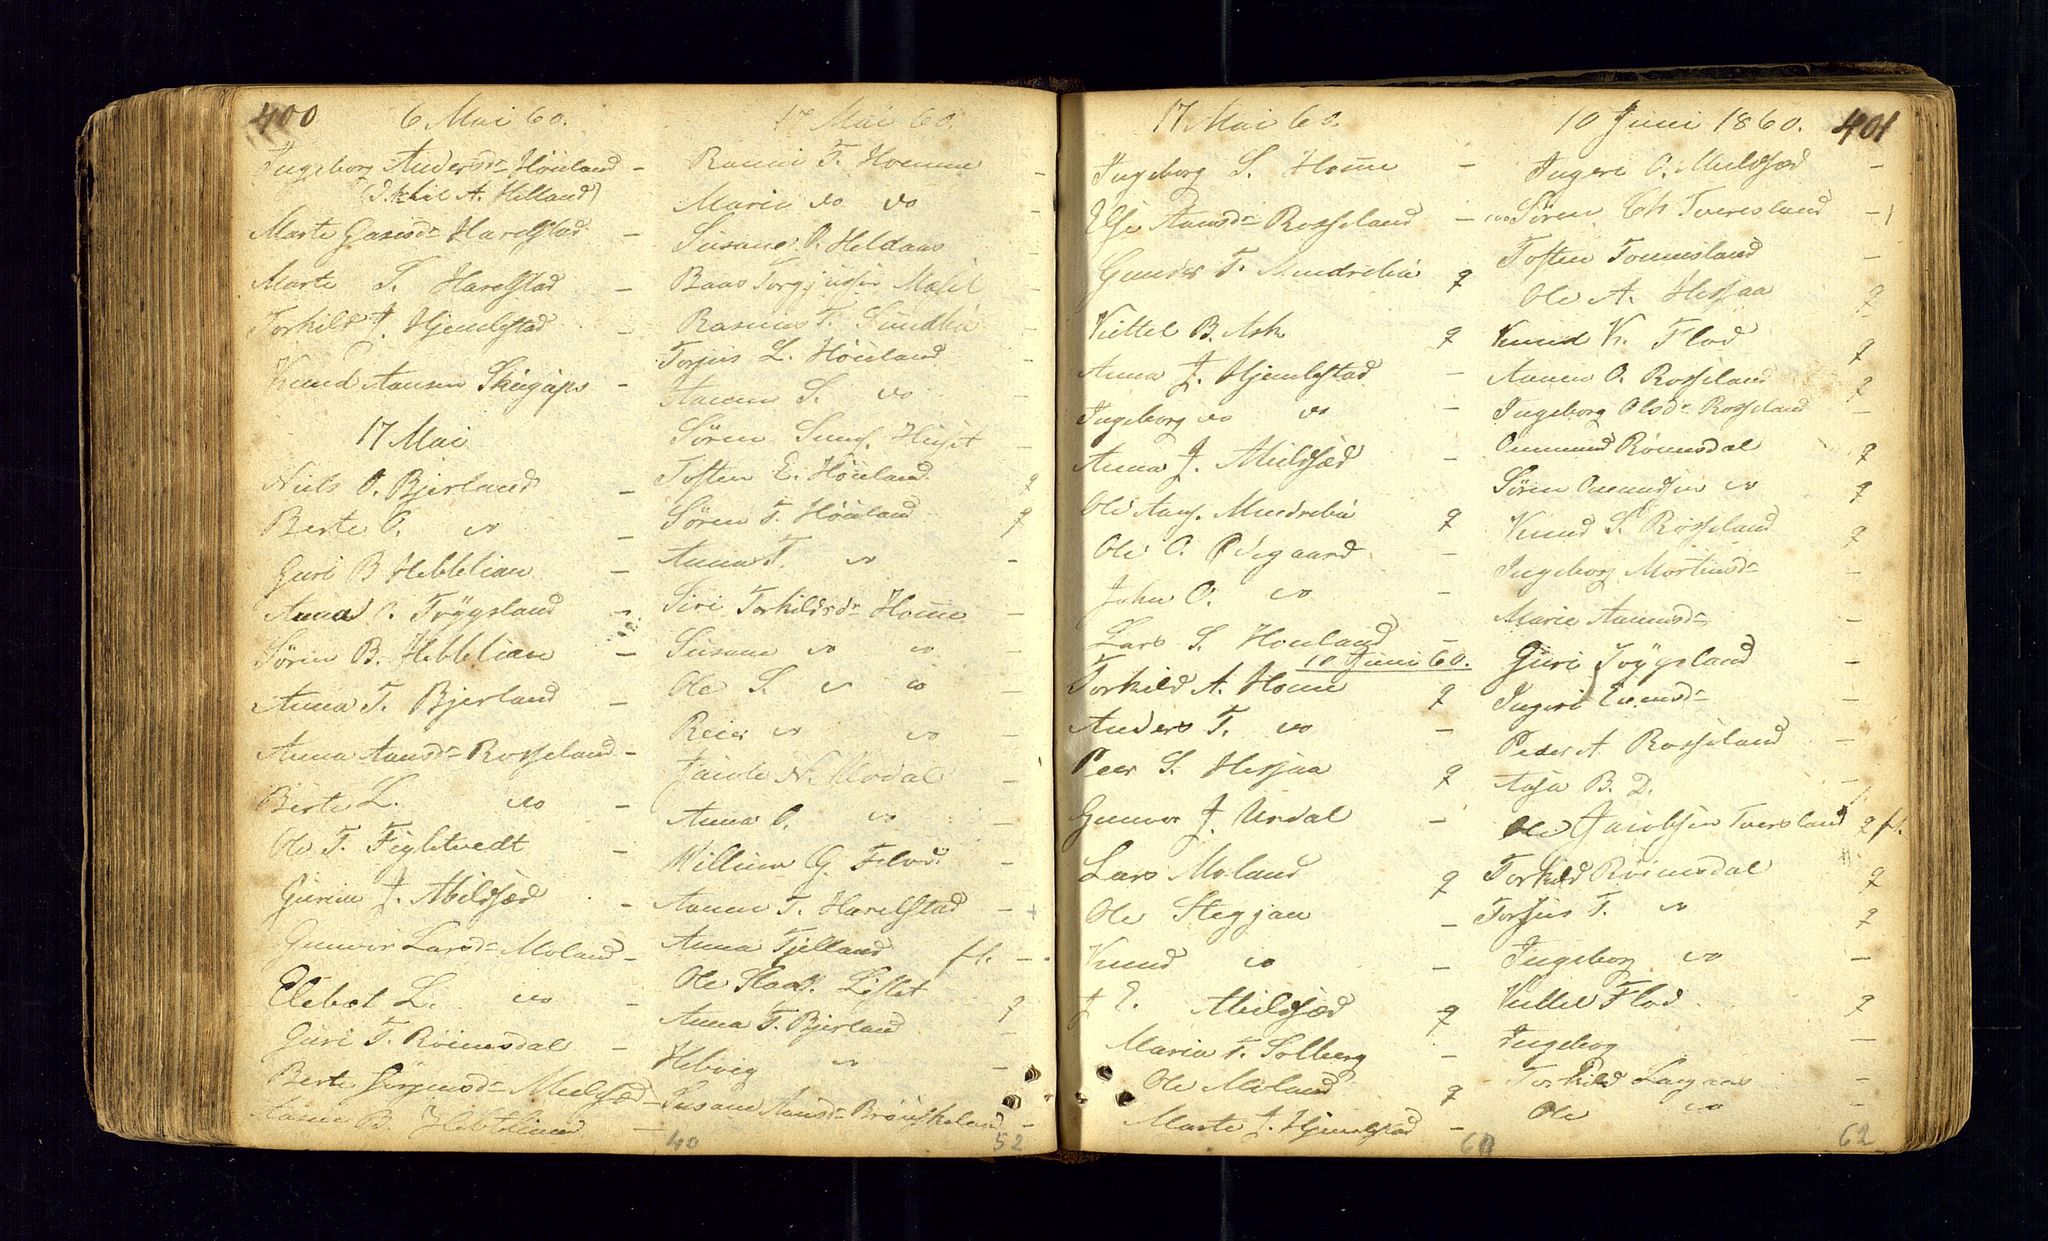 400
6 Mai 60.
Ingeborg Andersdr Höuland -
(T.khil A. Hilland)
Marte Gunsdr Harelstad -
Marte T. Harelstad -
Torkild J. Hjemlestad -
Knud Aansen -
17 Mai
Niels O. Bjerland -
Berte O. do -
Guri B Hebbelian -
Anna O. Tvygsland -
Sören B. Hebbelian -
Anna T. Bjerland -
Anna Aansdr Rosseland -
Berte L. do -
Ole T. Figletvedt -
Guren J. Mieldsæd -
Gunvor Larsdr Moland -
Elebet L. do -
Guri T. Röinesdal -
Berte Jörgensdr Mieldsæd -
Aasne B. Hebbelian -
40
17 Mai 60.
Rannei T. Homme -
Marie do do -
Susane O. Heldaas -
Baas Torgjusen -
Rasmus T. Sundlia -
Torjus L. Höuland -
Aanen S. do -
Sören -
Tosten E. Höuland q
Sören T. Höuland q
Anna T. do -
Siri Torkildsdr Home -
Susane do do -
Ole S. do do -
Reier do do -
Jacob N. Uvdal -
Anna O. do -
Willum G. Flod -
Aanen T. Harelstad -
Anna Fjelland fl. -
Ole q
Anna T. Bjerland -
Hebvig do -
Susane Aansdr -
52
17 Mai 60.
Ingeborg S. Home -
Else Aansdr Rosseland -
Gunder T. Mindrebö q
Kittel B. Ask q
Anna J. Hjemlestad -
Ingeborg do do -
Anna J. Mieldsæd -
Ole Aans. Mindrebö q
Ole O. Ødegaard -
John O. do -
Lars S. Houland -
10 Juni 60.
Torkild A. Home q
Anders T. do -
Peer S. Hesjaa q
Gunvor J. Uvdal -
Lars Moland q
Ole Steggjan -
Knud do -
J E. Mieldsæd q
Maria T. Solberg -
Ole Moland q
Marte J. Hjemlestad -
60
10 Juni 1860.
401
Ingeri O. Mieldsæd -
Sören Ch Tveresland -1
Tosten Tonnesland -
Ole A. Hesjaa q
Knud K. Flod q
Aanen O. Rosseland q
Ingeborg Olsdr Rosseland -
Omund Röinesdal q
Sören Omundsen do q
Knud S. Rosseland q
Ingeborg Mortensdr -
Marie Aanensdr -
Guri Tvygsland -
Ingeri -
Peder A Rosseland -
Aasa B. D. -
Ole Jacobsen Tveresland q fl.
Torkild Röinesdal q
Torjus T. do q
Ingeborg do -
Kittel Flod q
Ingeborg -
Torkild Laugaas -
Ole do -
62